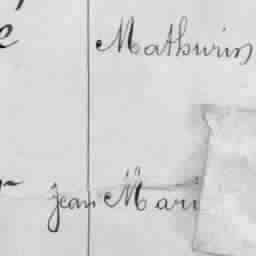 Mathurin
Jean Mari